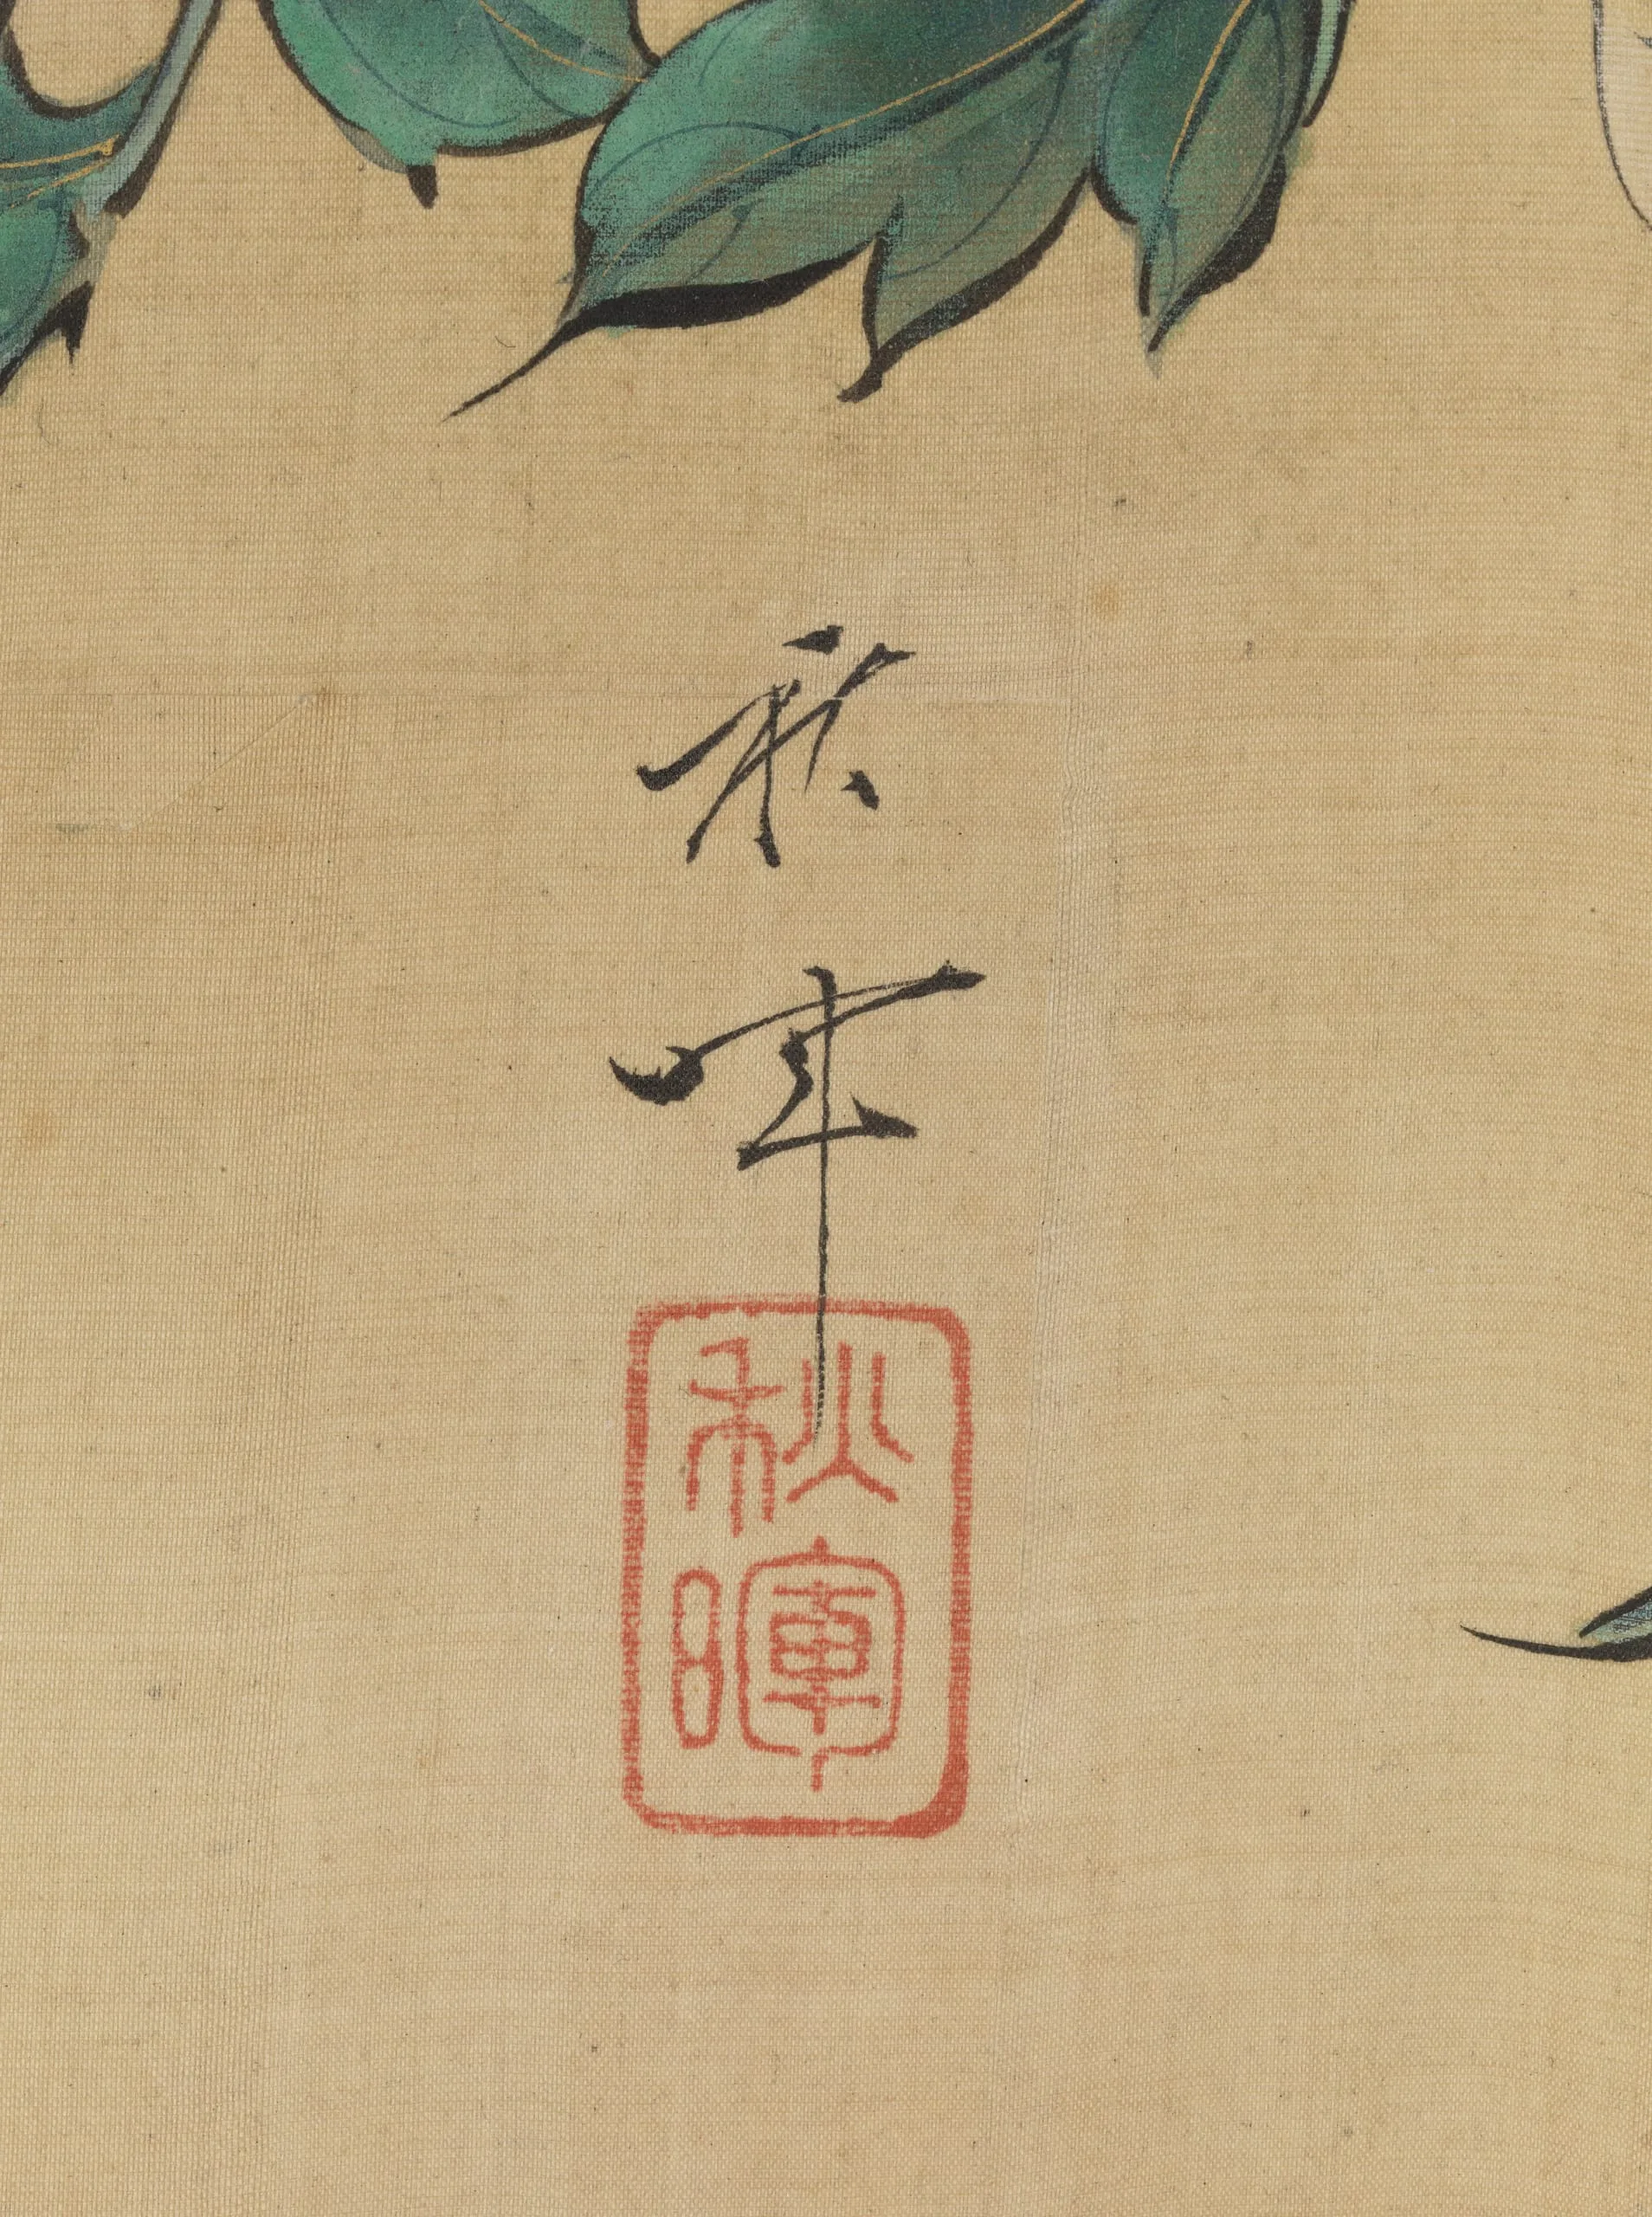 秋暉
秋暉